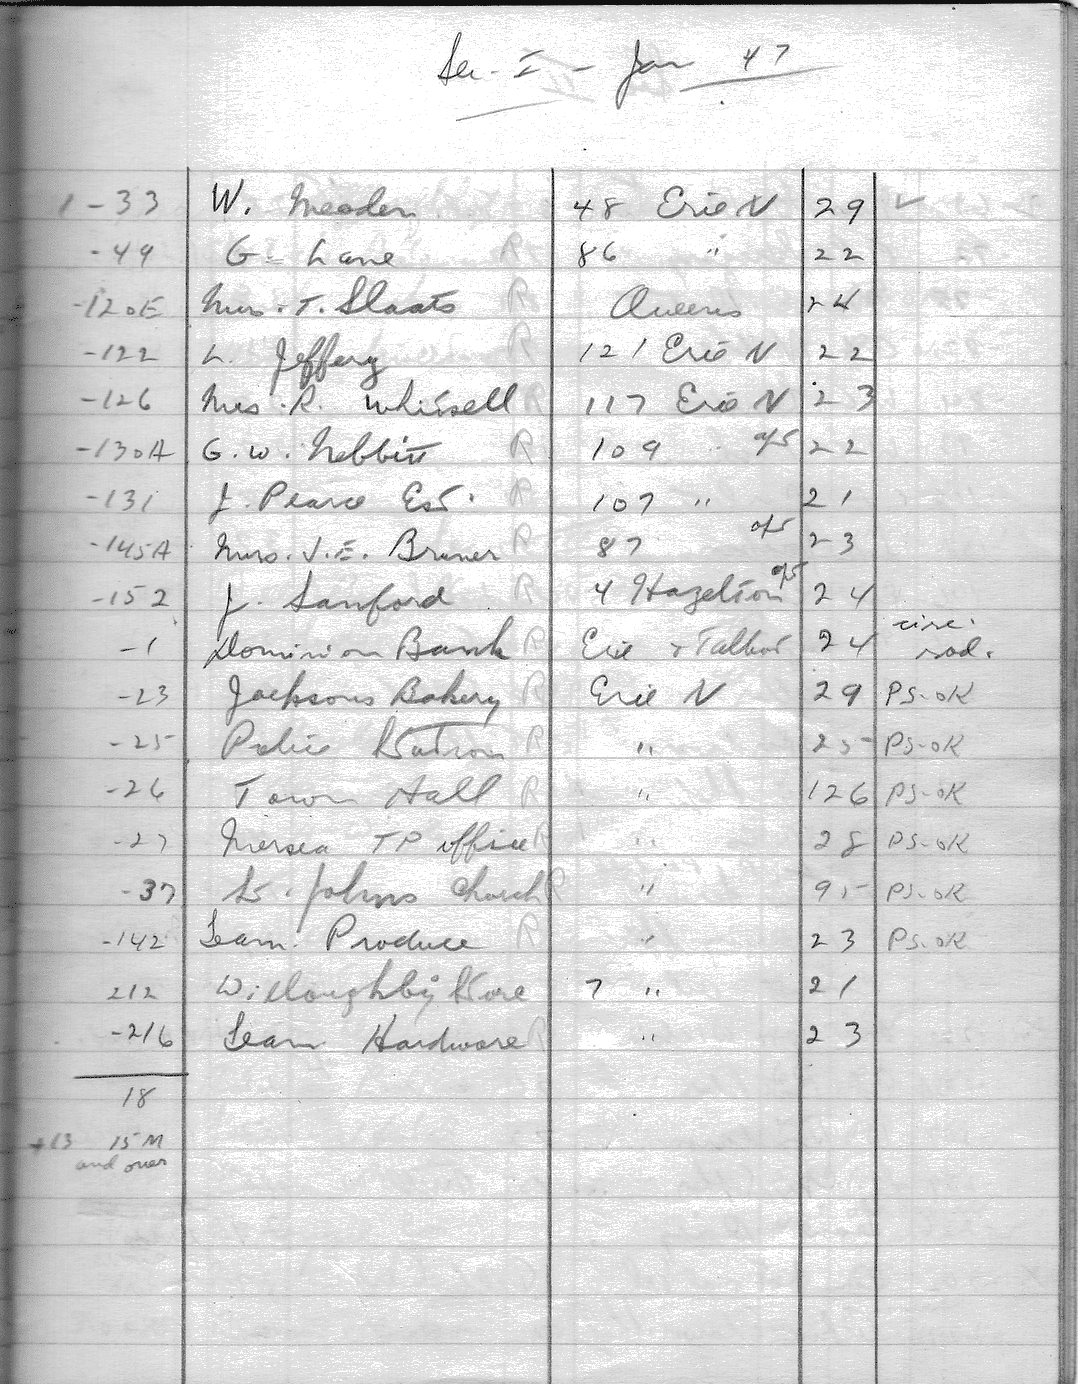 Sec. I - Jan 47
1-33 W. Meaden 48 Erie N 29 ✓
-49 G. Lane R 86 " 22
-120E Mrs. T. Slaats R Queens 24
-122 L. Jeffery R 121 Erie N 22
-126 Mrs. R. Whissell R 117 Erie N 23
-130A G. W. Nebbitt R 109 " 22
-131 J. Pearce Est. R 107 " 21
-145A Mrs. J. E. Bruner R 87 23
-152 J. Sanford R 4 Hazelton 24
-1 Dominion Bank R Erie & Talbot 24 circ. rad.
-23 Jacksons Bakery R Erie N 29 PS-OK
-25 Police Station R " 25 PS-OK
-26 Town Hall R " 126 PS-OK
-27 Mersea TP office R " 28 PS-OK
-37 St. Johns Church R " 95 PS-OK
-142 Leam. Produce R " 23 PS-OK
212 Willoughby Store 7 " 21
-216 Leam Hardware R " 23
18
+13 15 M
and over